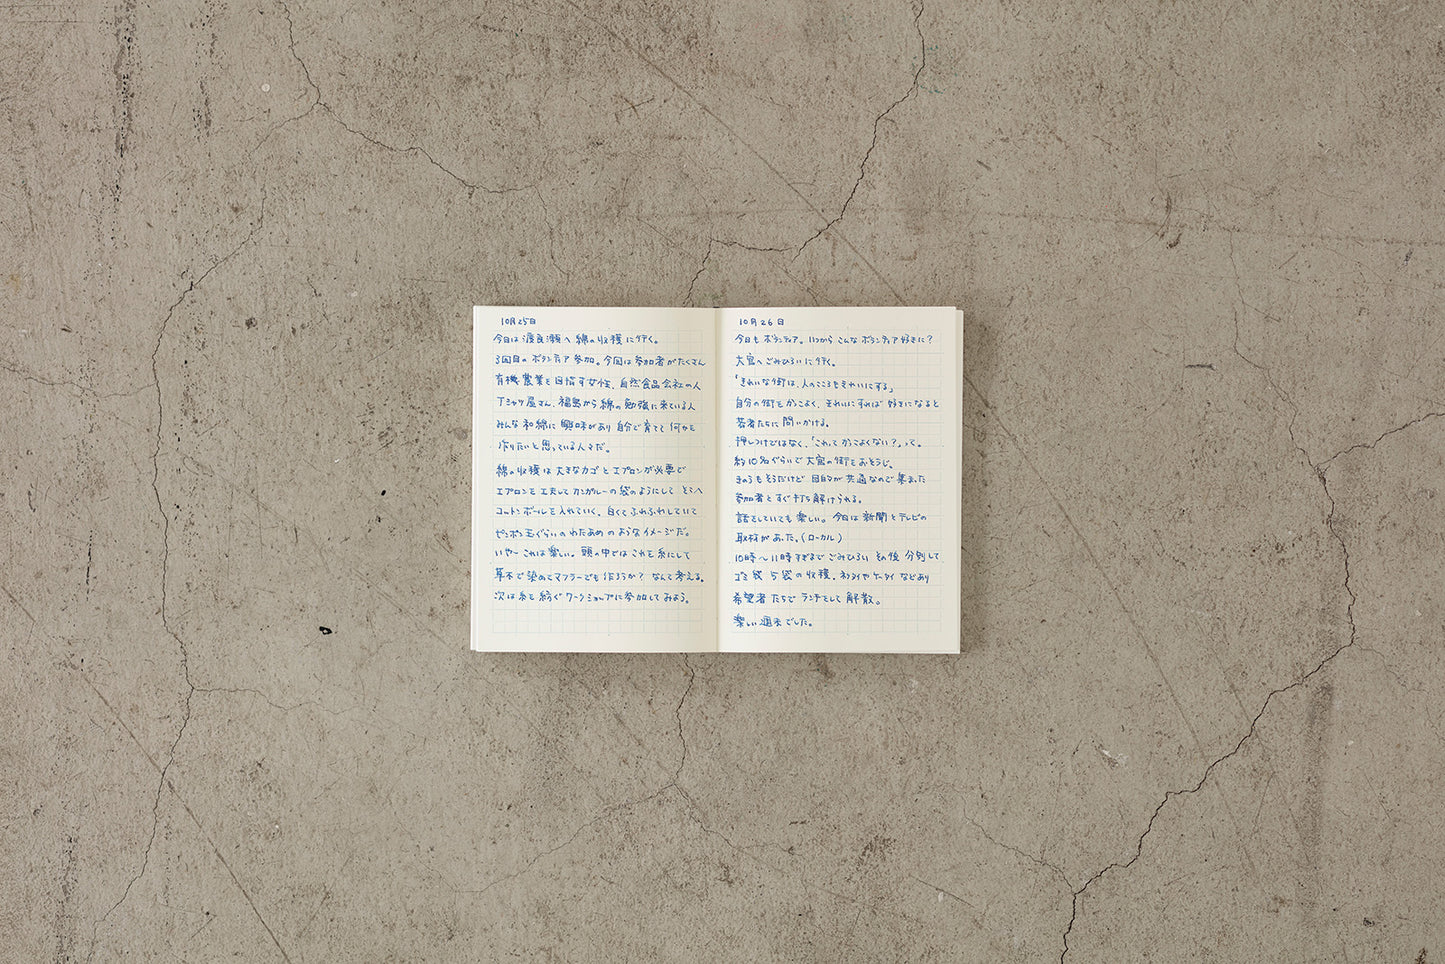 10月25日
今日は渡良瀬へ綿の収穫に行く。
3回目のボランティア参加。今回は参加者がたくさん
有機農業を目指す女性、自然食品会社の人
Tシャツ屋さん、福島から綿の勉強に来ている人
みんな和綿に興味があり自分で育てて何かを
作りたいと思っている人々だ。
綿の収穫は大きなカゴとエプロンが必要で
エプロンを工夫してカンガルーの袋のようにしてそこへ
コットンボールを入れていく、白くてふわふわしていて
ピンポン玉ぐらいのわたあめのようなイメージだ。
いや〜これは楽しい。頭の中ではこれを糸にして
草木で染めてマフラーでも作ろうか？なんて考える。
次は糸を紡ぐワークショップに参加してみよう。
10月26日
今日もボランティア。いつからこんなボランティア好きに？
大宮へごみひろいに行く。
「きれいな街は、人のこころもきれいにする」
自分の街をかっこよく、きれいにすれば好きになると
若者たちに問いかける。
押しつけではなく、「これってかっこよくない？」って。
約10名ぐらいで大宮の街をおそうじ。
きのうもそうだけど目的が共通なので集まった
参加者とすぐ打ち解けられる。
話をしていても楽しい。今日は新聞とテレビの
取材があった。(ローカル)
10時〜11時すぎまでごみひろいその後分別して
ゴミ袋5袋の収穫。ネクタイやケータイなどあり
希望者たちでランチをして解散。
楽しい週末でした。